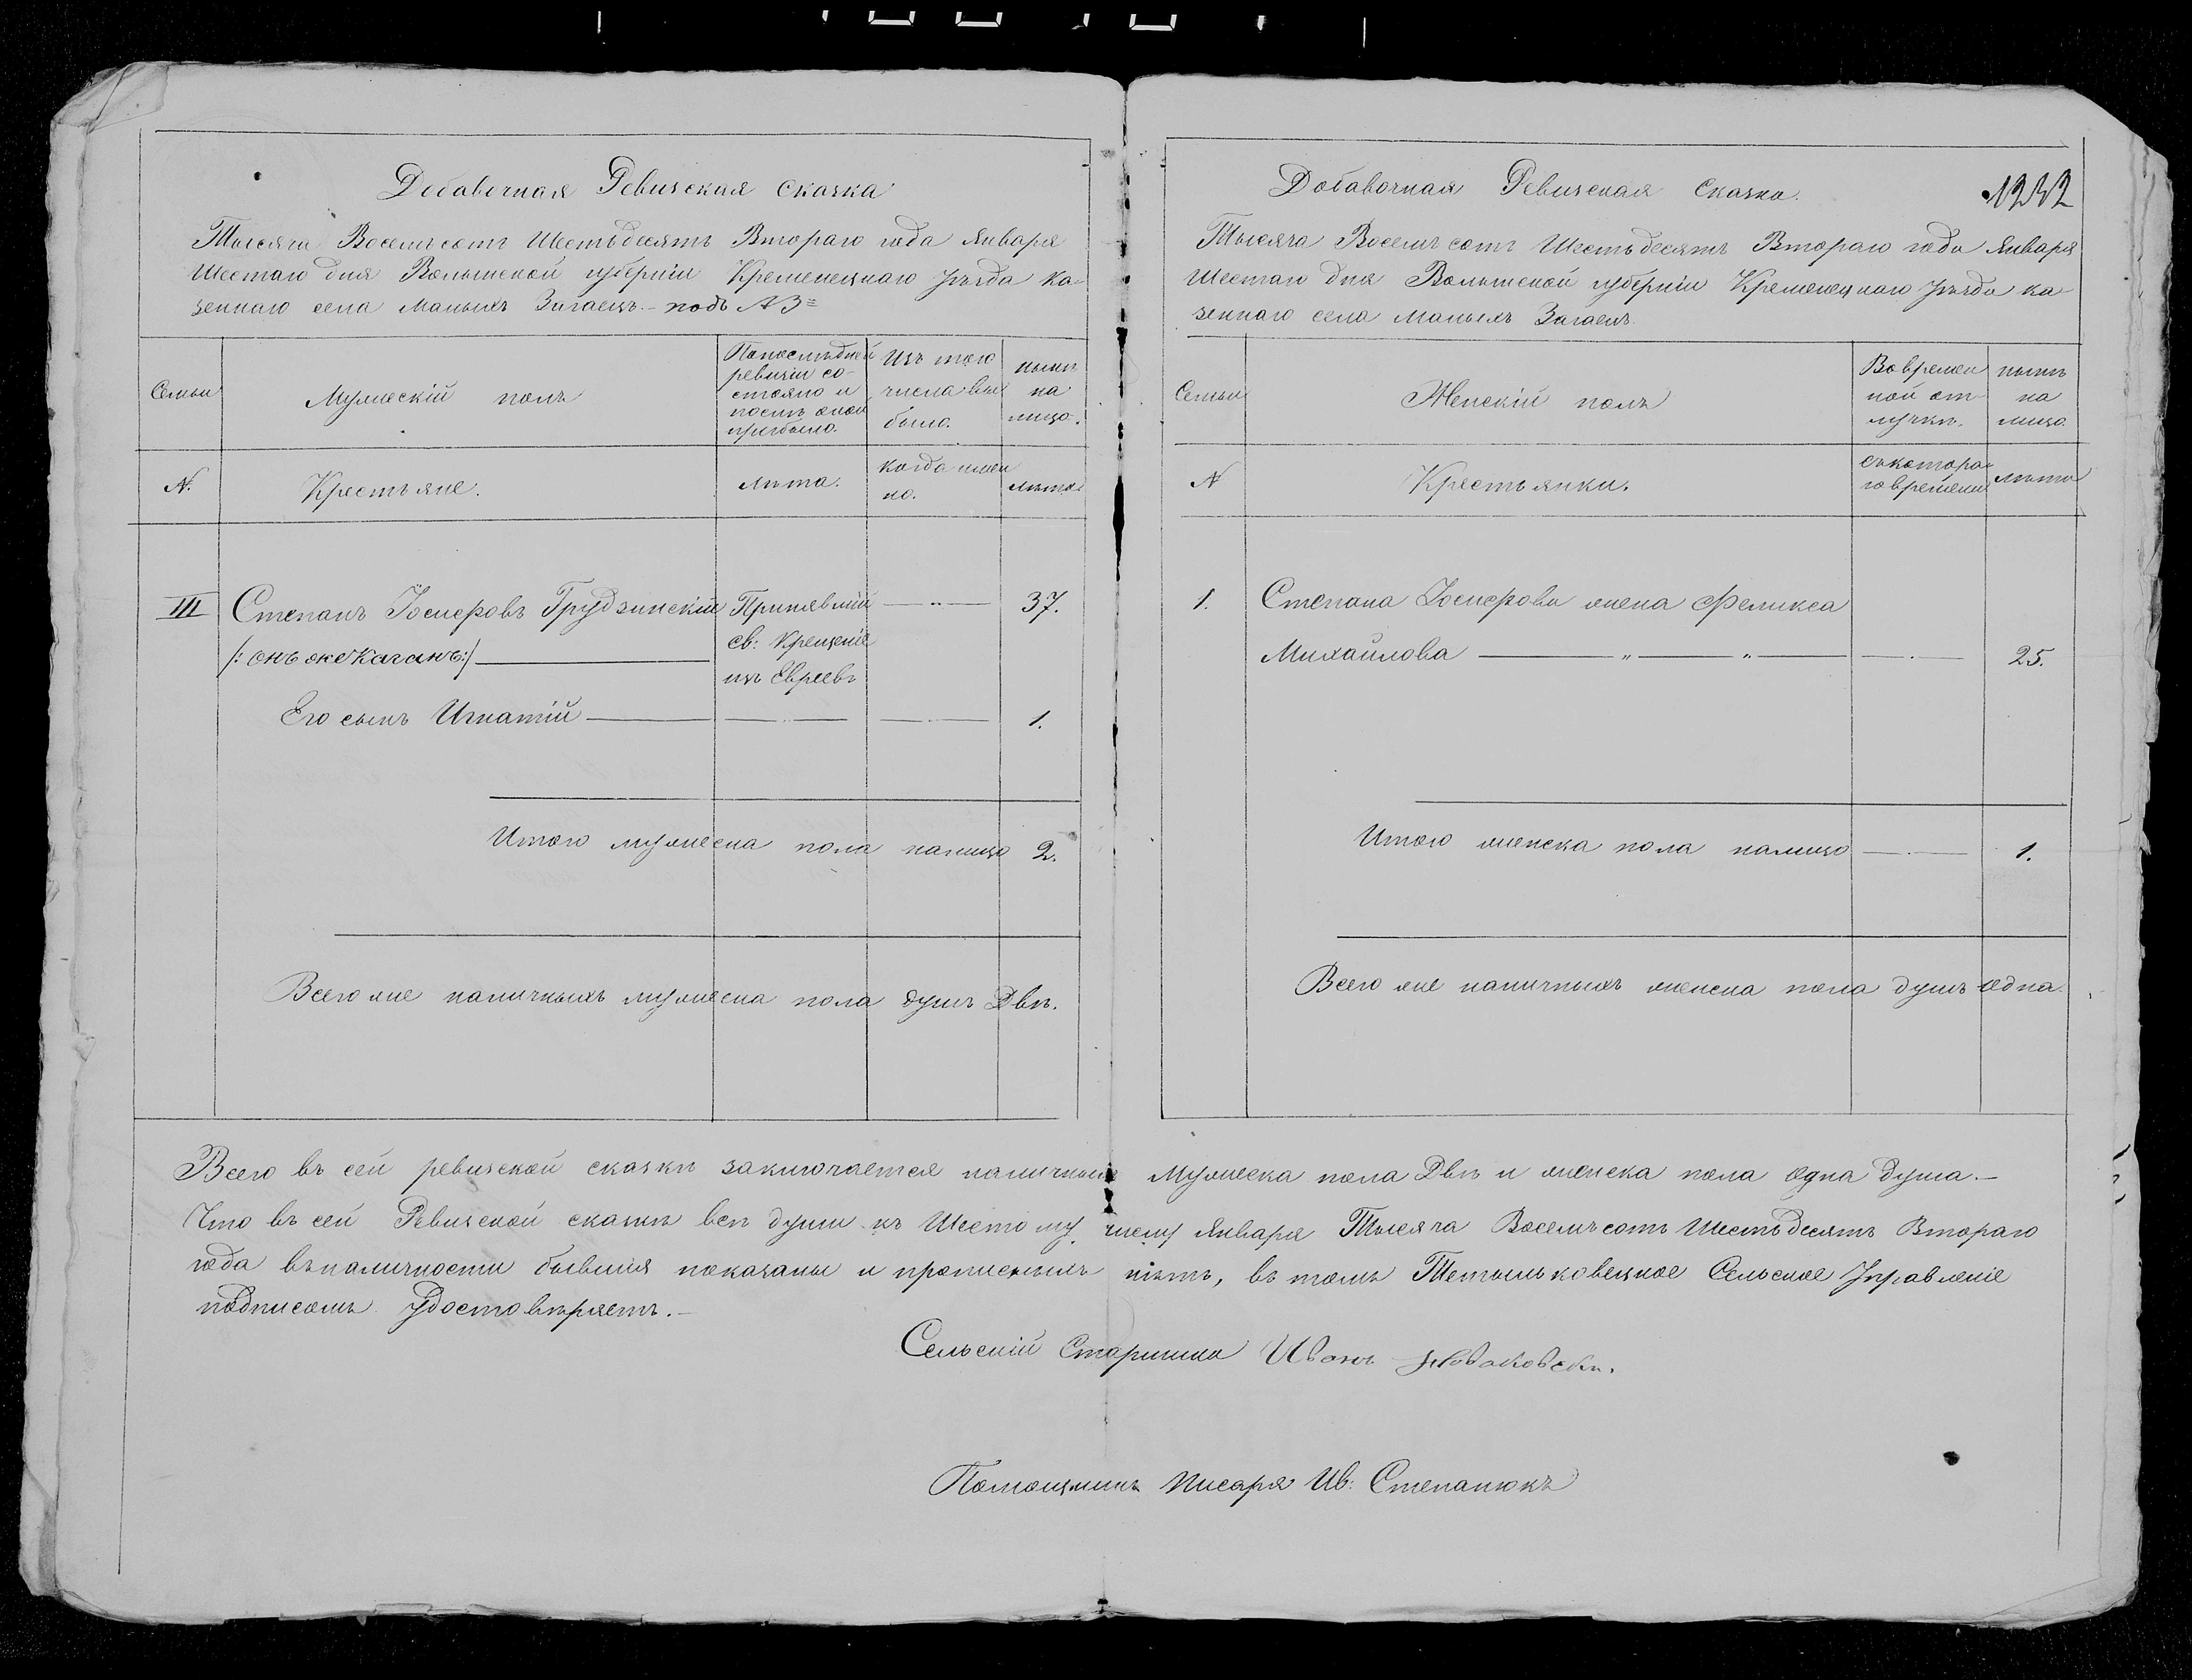 Добавочная Ревизская Сказка
Тысяча Восемьсотъ Шестьдесятъ Втораго года Января
Шестаго дня Волынской губерніи Кременецкаго уѣзда ка-
зеннаго села Малыхъ Загаецъ.- подъ №3=
Семьи
Мужескій полъ
Попослѣдней
ревизіи со-
стояло и
послѣ оной
прибыло.
Изъ того
числа вы
было.
нынѣ
на
лицо.
N.
Крестьяне.
лѣта.
когда имен
но.
лѣта
III
Степанъ Іосифовъ Грудзинскій
/: онъ же Каганъ:/
Принявшій
св: Крещеніе
изъ Евреевъ
37.
Его сынъ Игнатій
1.
Итого мужеска пола налицо 2.
Всего же наличныхъ мужеска пола душъ Двѣ.
Добавочная Ревизская Сказка.
1232
Тысяча Восемьсотъ Шестьдесятъ Втораго года Января
Шестаго дня Волынской губерніи Кременецкаго уѣзда ка
зеннаго села Малыхъ Загаецъ
Семьи
Женскій полъ
Вовремен
ной от-
лучкѣ.
нынѣ
на
лицо.
N
Крестьянки.
съкотора-
го времени
лѣта
1.
Степана Іосифова жена Феликса
Михайлова
25.
Итого женска пола налицо 1.
Всего же наличныхъ женска пола душъ одна.
Всего въ сей ревизской сказкѣ заключается наличныхъ Мужеска пола Двѣ и женска пола одна душа.-
Что въ сей Ревизской сказкѣ всѣ души къ Шестому числу Января Тысяча Восемьсотъ Шестьдесятъ Втораго
года въналичности бывшія показаны и прописныхъ нѣтъ, въ томъ Тетыльковецкое Сельское Управленіе
подписомъ удостовѣряетъ.-
Сельскій Старшина Иванъ Новаковски.
Помощникъ Писаря Ив: Степанюкъ